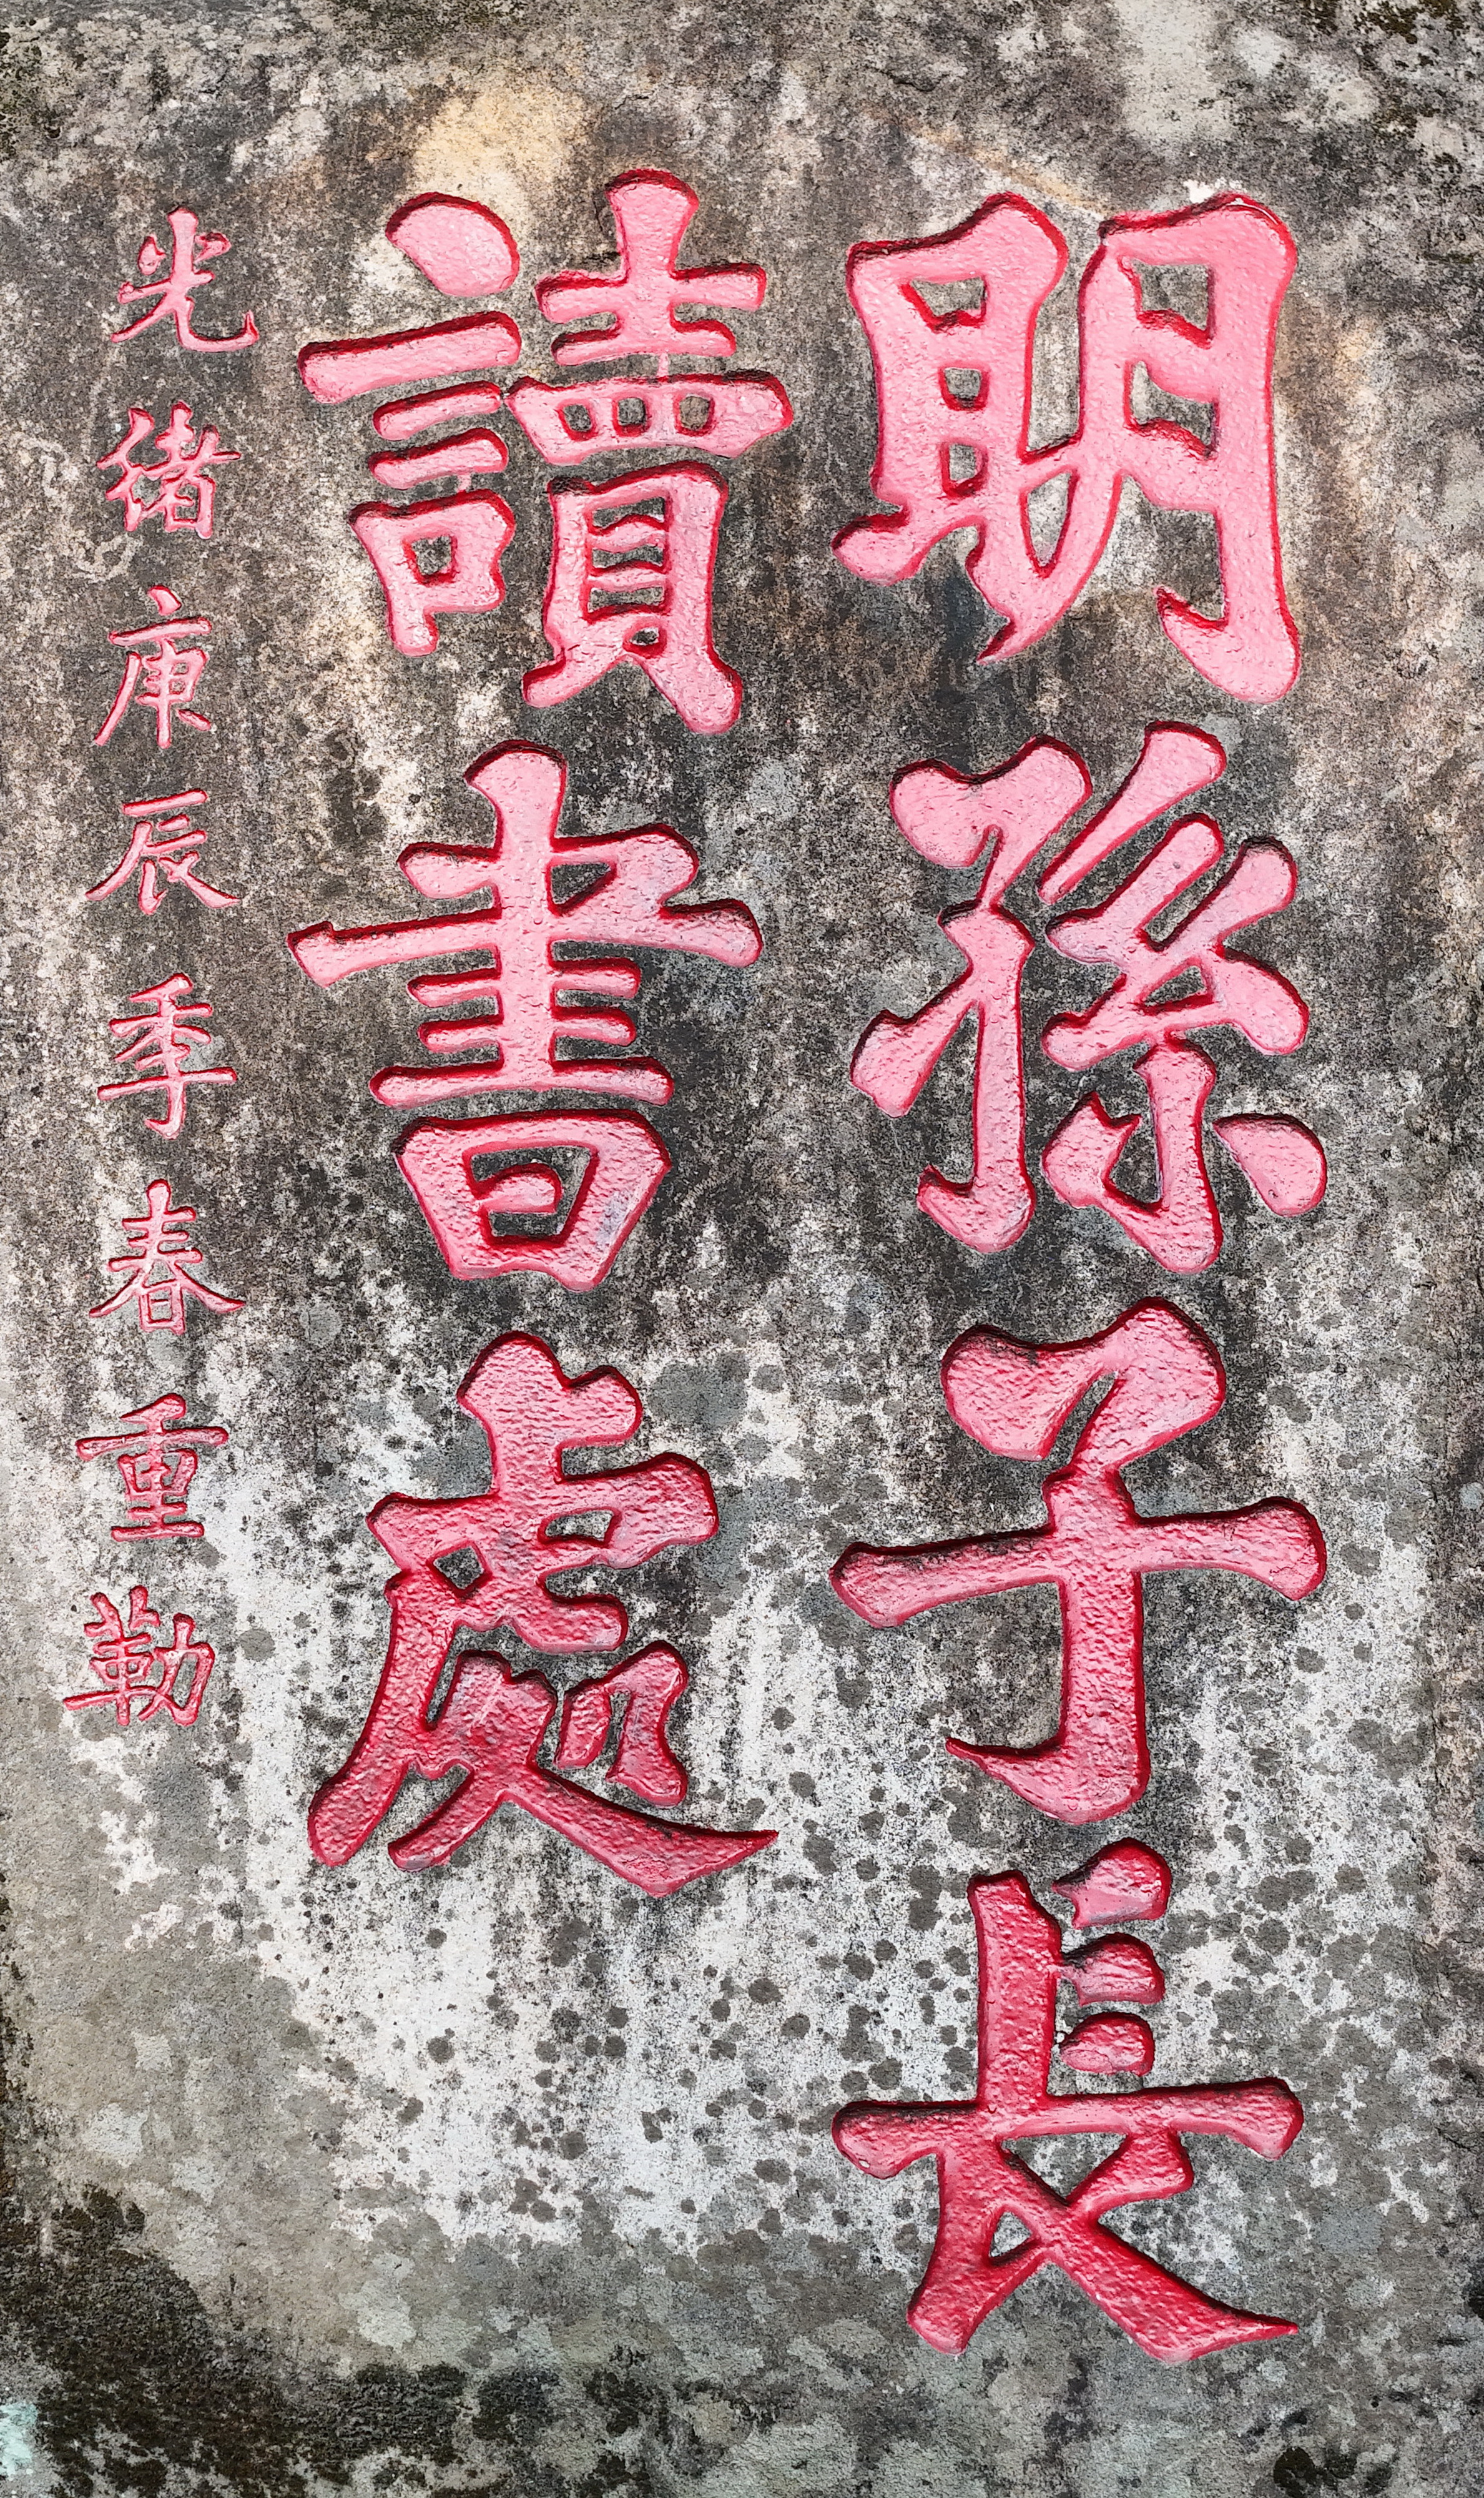 明孫子長
讀書處
光緒庚辰季春重勒